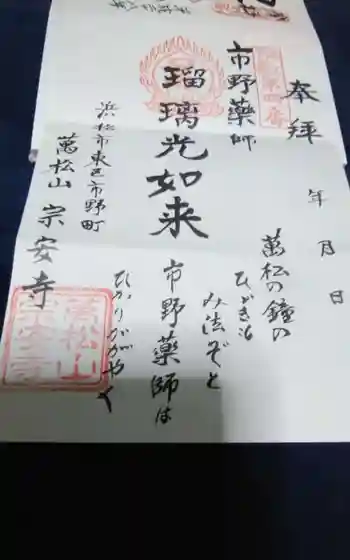 奉拝
年月日
市野薬師
瑠璃光如来
浜松市東区市野町
萬松山宗安寺
萬松の鐘の
ひびきも
み法ぞと
市野薬師は
ひかりかがやく
萬松山
宗安寺